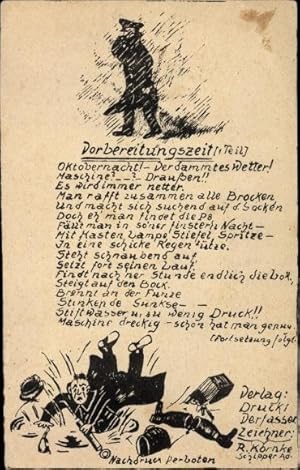 Vorbereitungszeit [1 Teil]
Oktobernacht! - Verdammtes Wetter!
Maschine? - : Draußen!!
Es wird immer netter.
Man rafft zusammen alle Brocken
Und macht sich suchend auf d. Socken
Doch eh' man findet die
Fällt man in seiner finstern Nacht -
Mit Kasten, Lampe, Stiefel, Spritze -
In eine schicke Regenpfütze.
Steht schnaubend auf
Setzt fort seinen Lauf.
Findet nach 'ner Stunde endlich die Lok,
Steigt auf den Bock.
Brennt an der Funze
Stinkende Gunkse - -
Stift Wasser u. zu wenig Druck!!
Maschine dreckig - schon hat man genug
(Fortsetzung folgt.
Verlag:
Druck:
Verfasser
Zeichner:
R. Körnke
Nachdruck verboten